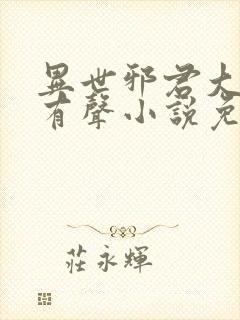 異世邪君大
有聲小說免
莊永輝